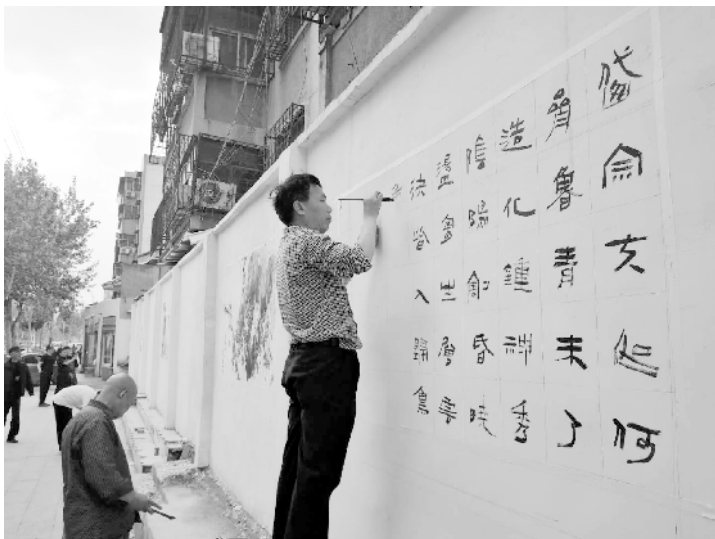 岱宗夫如何
齊魯青未了
造化鍾神秀
陰陽割昏曉
盪胷生層雲
決眥入歸鳥